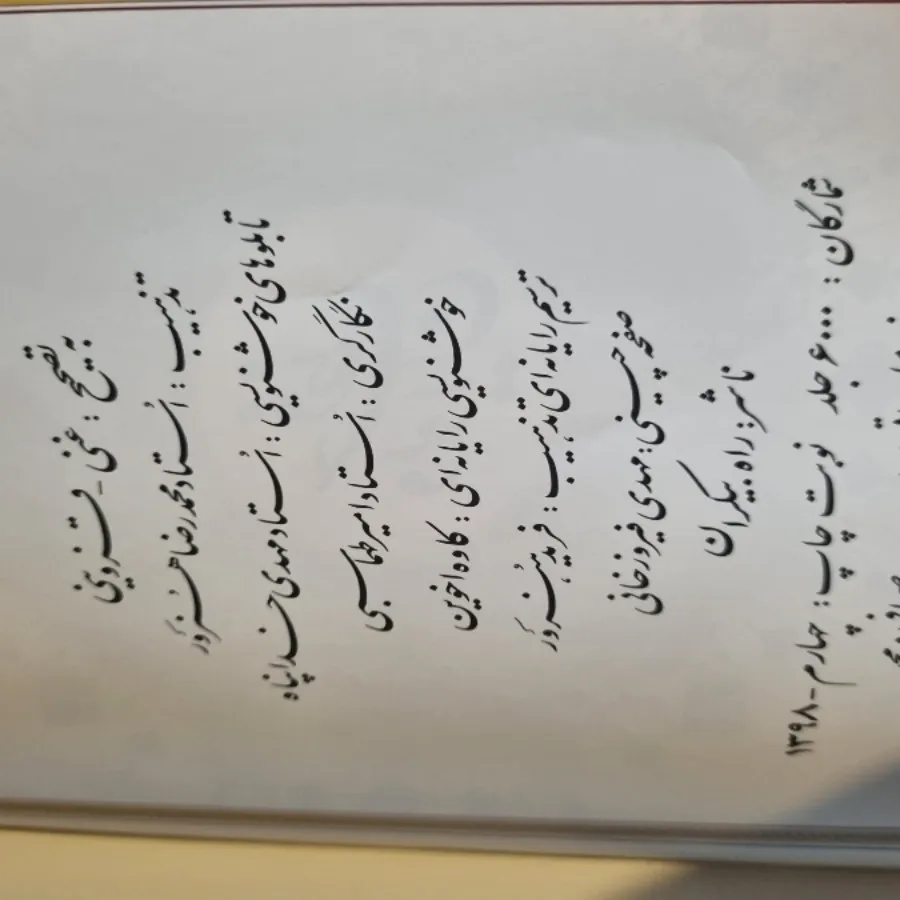 به تصحیح : غنی - قزوینی
تذهیب : اُستاد محمدرضا هنرور
تابلوهای خوشنویسی : اُستاد مهدی خداپناه
نگارگری : اُستاد امیر طهماسبی
خوشنویسی رایانه‌ای : کاوه اخوین
ترسیم رایانه‌ای تذهیب : فرید هنرور
صفحه چینی : مهدی فیروزخانی
ناشر : راه بیکران
شمارگان : ۶۰۰۰ جلد نوبت چاپ : چهارم - ۱۳۹۸